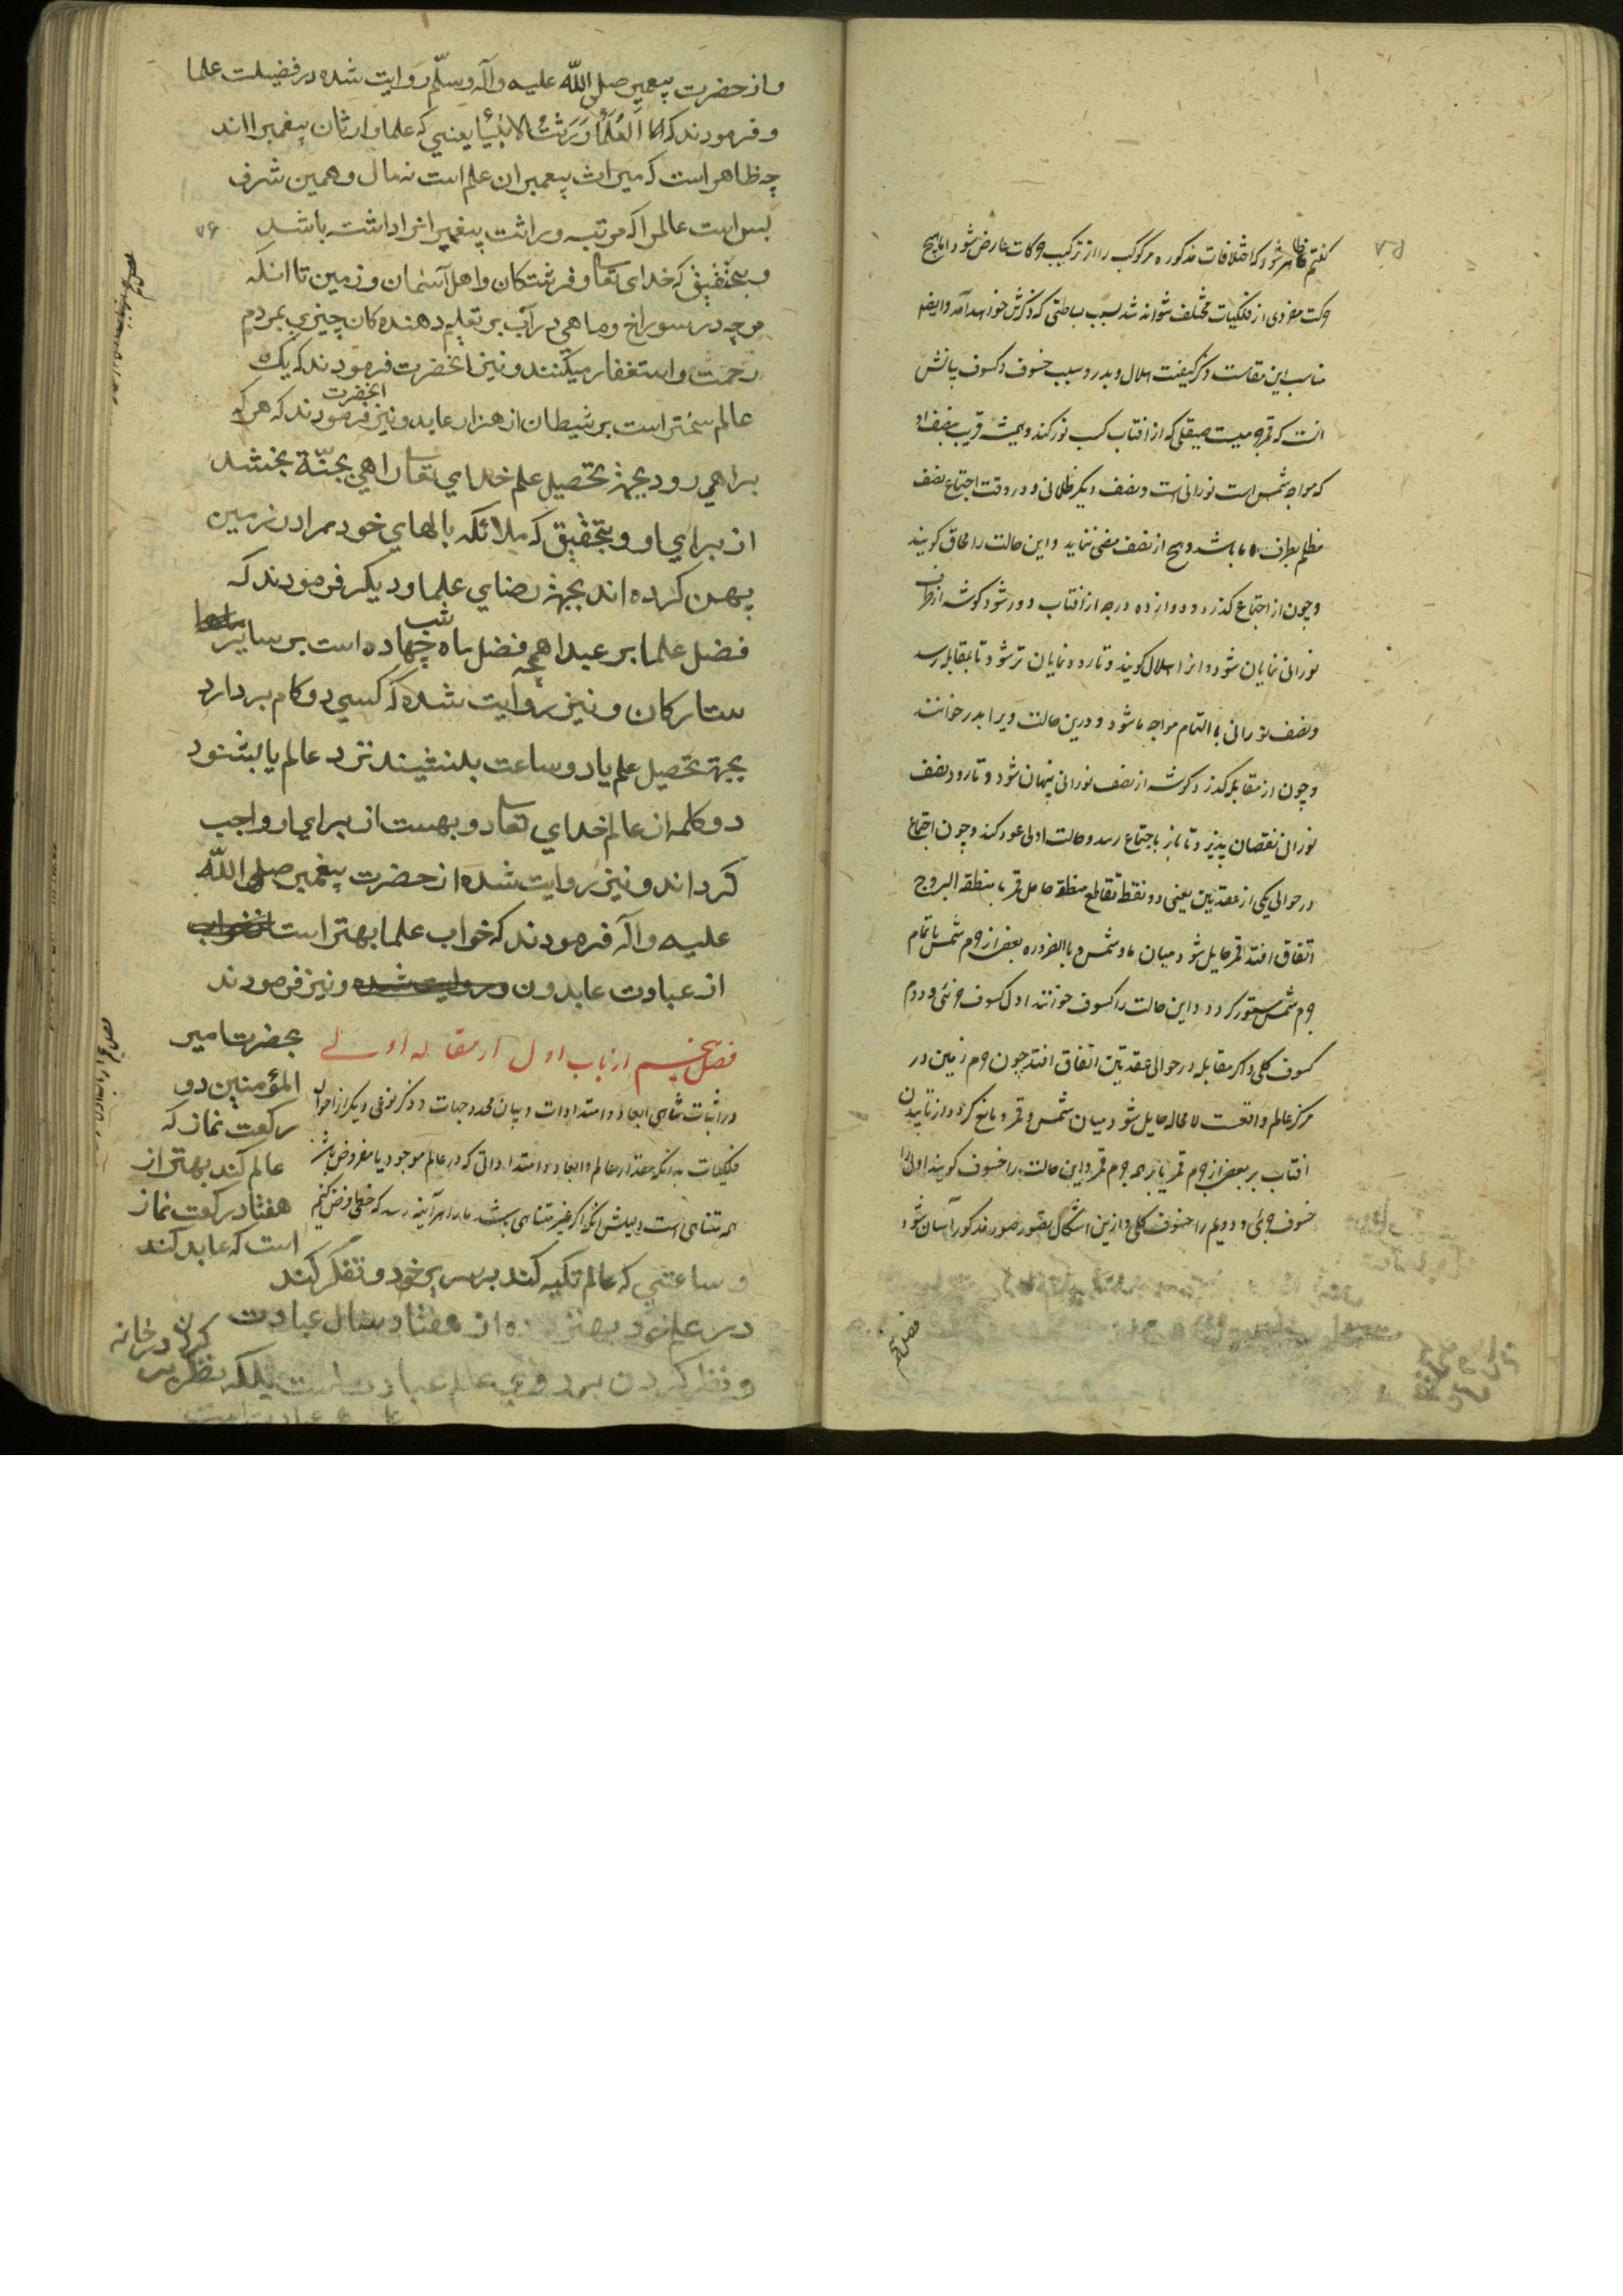 گفتیم ظاهر شود که اختلافات مذکوره هر کوکب را از ترکیب حرکات عارض شود اما هیچ
حرکت مفردی از فلکیات مختلف نتواند شد بسبب بساطتی که ذکرش خواهد آمد و ایضا
مناسب این مقامست ذکر کیفیت هلال و بدر و سبب خسوف و کسوف بیانش
انست که قمر جرمیست صیقلی که از افتاب کسب نور کند و همیشه قریب بنصف او
که مواجه شمس است نورانی است و نصف دیگر ظلمانی و در وقت اجتماع نصف
مظلم بطرف ما باشد و هیچ از نصف مضی ننماید و این حالت را محاق کویند
و چون از اجتماع کذرد و دوازده درجه از افتاب دور شود کوشه از طرف
نورانی نمایان شود و انرا هلال کویند و تا رود نمایان تر شود تا بمقابله رسد
و نصف نورانی بالتمام مواجه ما شود و درین حالت ویرا بدر خوانند
و چون از مقابله کذرد کوشه از نصف نورانی پنهان شود و تا رود نصف
نورانی نقصان پذیرد تا باز باجتماع رسد و حالت اولی عود کند و چون اجتماع
در حوالی یکی از عقدتین یعنی دو نقطه تقاطع منطقه حامل قمر با منطقه البروج
اتفاق افتد قمر حایل شود میان ما و شمس و بالضروره بعضی از جرم شمس یا تمام
جرم شمس مستور کردد و این حالت را کسوف خوانند اول کسوف جزئی و دوم
کسوف کلی و اکر مقابله در حوالی عقدتین اتفاق افتد چون جرم زمین در
مرکز عالم واقعست لا محاله حایل شود میان شمس و قمر و مانع کردد از تابیدن
افتاب بر بعضی از جرم قمر یا بر همه جرم قمر و این حالت را خسوف کویند اولی را
خسوف جزئی و دویم را خسوف کلی و ازین اشکال تصور صور مذکور آسان شود
فصل پنجم
و از حضرت پیغمبر صلی الله علیه و آله و سلّم روایت شده در فضیلت علما
و فرمودند که الْعُلَمَاُ وَرَثَتُ الانبیَا یعنی که علما وارثان پیغمبرانند
چه ظاهر است که میراث پیغمبران علم است نه مال و همین شرف
بس است عالمرا که مرتبه وراثت پیغمبرانرا داشته باشد
۷۶
و بتحقیق که خدای تعا و فرشتکان و اهل آسمان و زمین تا انکه
مورچه در سوراخ و ماهی در آب بر تعلیم دهنده کان چیزی بمردم
رحمت و استغفار میکنند و نیز انحضرت فرمودند که یک
عالم سختر است بر شیطان از هزار عابد و نیز انحضرت فرمودند که هر که
براهی رود بجهة تحصیل علم خدای تعا راهی بجنّة بخشد
از برای او و بتحقیق که ملائکه بالهای خود در زمین
پهن کرده اند بجهة رضای علما و دیکر فرمودند که
فضل علما بر عبدا همچه فضل ماه شب چهاده است بر سایر
ستارکان و نیز روایت شده که کسی دو کام بردارد
بجهة تحصیل علم یا دو ساعت بنشیند نزد عالم یا بشنود
دو کلمه از عالم خدای تعا دو بهست از برای او واجب
کرداند و نیز روایت شده از حضرت پیغمبر صلی الله
علیه و آله فرمودند که خواب علما بهتر است
از عبادت عابدون و نیز فرمودند
بحضرت امیر
المؤمنین دو
رکعت نماز که
عالم کند بهتر از
هفتاد رکعت نماز
است که عابد کند
فصل پنجم از باب اول از مقاله اولی
در اثبات تناهی ابعاد و امتدادات و بیان محدد جهات و ذکر نوعی دیکر از احوال
فلکیات بدانکه مقدار عالم و ابعاد و امتداداتی که در عالم موجود یا مفروض باشد
همه متناهی است و بیانش انکه اکر غیر متناهی باشد ما را هر آینه رسد که خطی فرض کنیم
و ساعتی که عالم تکیه کند بر سریر خود و تفکر کند
در علم خود بهتر از هفتاد سال عبادت
و نظر کردن بر روی عالم عبادت است بلکه نظر بر
کردن در خانه